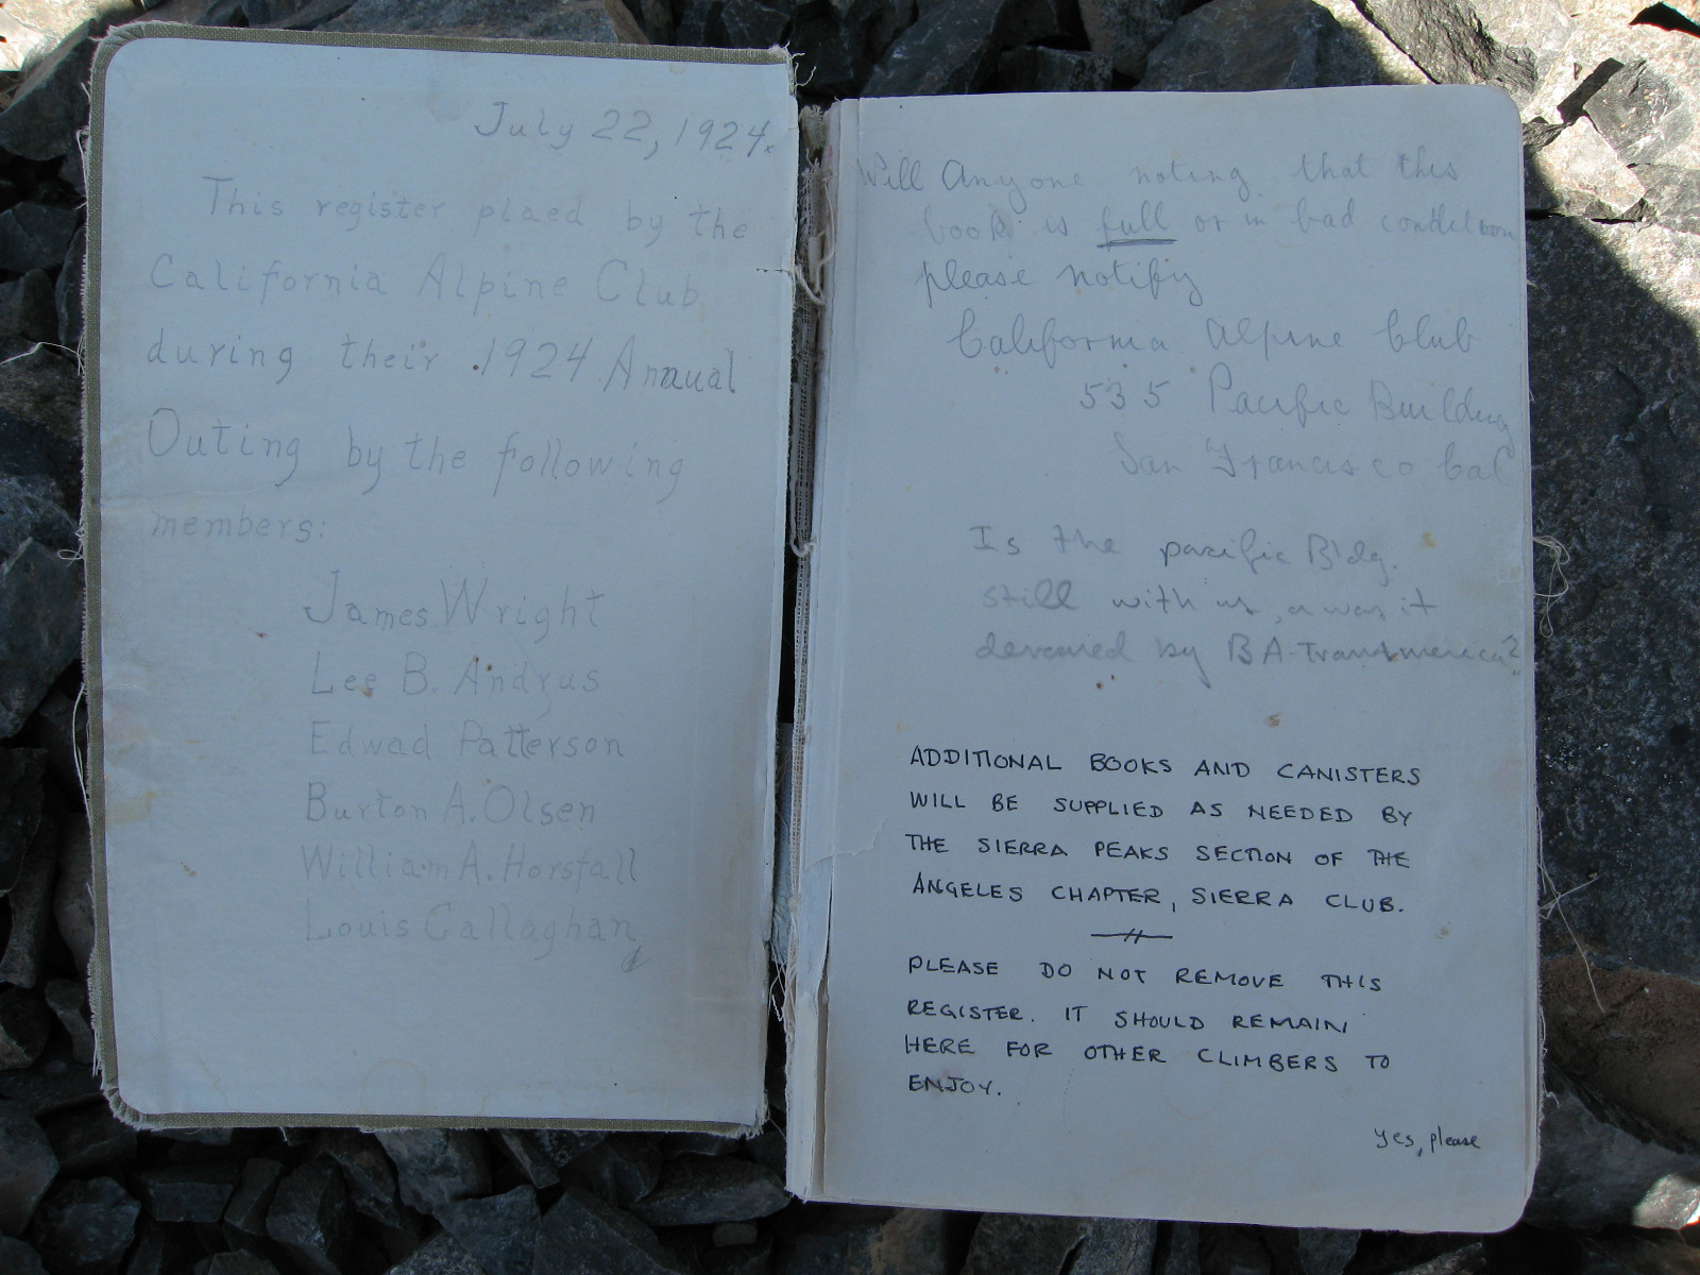 July 22, 1924.
This register plaed by the
California Alpine Club
during their 1924 Annual
Outing by the following
members:
James Wright
Lee B. Andrus
Edwad Patterson
Burton A. Olsen
William A. Horsfall
Louis Callaghan
Will Anyone noting that this
book is full or in bad condition
please notify
California Alpine Club
535 Pacific Building
San Francisco Cal
Is the pacific Bldg.
still with us, or was it
devoured by BA-Transamerica?
ADDITIONAL BOOKS AND CANISTERS
WILL BE SUPPLIED AS NEEDED BY
THE SIERRA PEAKS SECTION OF THE
ANGELES CHAPTER, SIERRA CLUB.
PLEASE DO NOT REMOVE THIS
REGISTER. IT SHOULD REMAIN
HERE FOR OTHER CLIMBERS TO
ENJOY.
yes, please